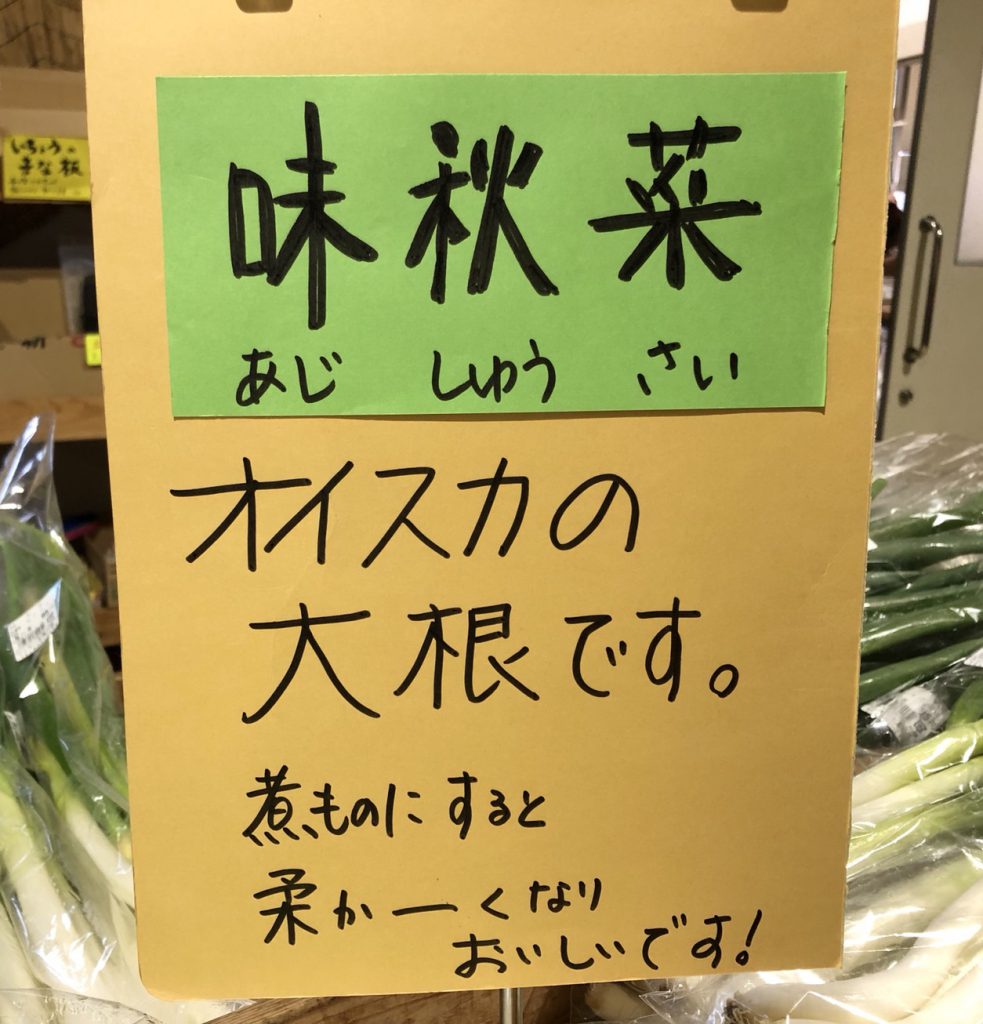 いちょうの
まな板
味秋菜
あじ しゅう さい
オイスカの
大根です。
煮ものにすると
柔かーくなり
おいしいです!